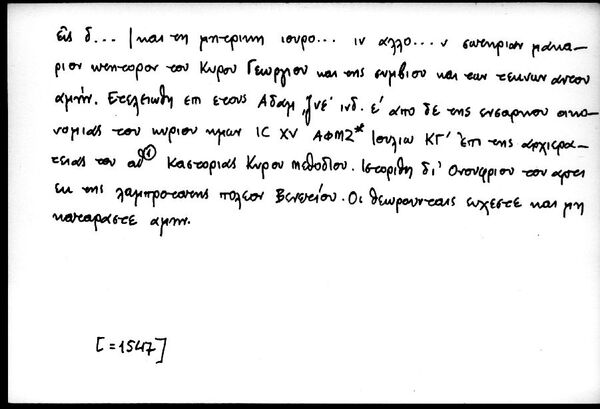 εις δ... | και τη μητερικη ιουρο... ιν αλλο...ν σωτηριαν μακα-
ριον κτητορον του Κυρου Γεωργιου και της συμβιου και των τεκνων αυτου
αμήν. Ετελειωθη επι ετους Αδαμ ,ζνε' ινδ. ε' απο δε της ενσαρκου οικο-
νομιας του κυριου ημων ΙC XV ΑΦΜΖ* Ιουλιω ΚΓ' επι της αρχιερα-
τειας του Καστοριας Κυρου Μεθοδιου. Ιστορίθη δι' Ονουφριου του αρτι
εκ της λαμπροτατης πολεον Βενετιου. Οι θεωρουνταις ευχεστε και μη
καταραστε αμην.
[=1547]